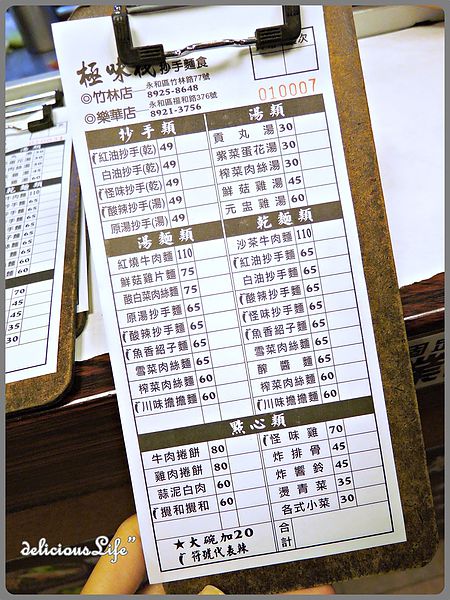 極味棧抄手麵食
次
◎竹林店 永和區竹林路77號
8925-8648
◎樂華店 永和區福和路376號
8921-3756
010007
抄手類
紅油抄手(乾) 49
白油抄手(乾) 49
怪味抄手(乾) 49
酸辣抄手(湯) 49
原湯抄手(湯) 49
湯類
貢丸湯 30
紫菜蛋花湯 30
榨菜肉絲湯 30
鮮菇雞湯 45
元盅雞湯 60
湯麵類
紅燒牛肉麵 110
鮮菇雞片麵 75
酸白菜肉絲麵 75
原湯抄手麵 65
酸辣抄手麵 65
魚香紹子麵 65
雪菜肉絲麵 65
榨菜肉絲麵 60
川味擔擔麵 60
乾麵類
沙茶牛肉麵 110
紅油抄手麵 65
白油抄手麵 65
酸辣抄手麵 65
怪味抄手麵 65
魚香紹子麵 65
雪菜肉絲麵 65
醡醬麵 65
榨菜肉絲麵 60
川味擔擔麵 60
點心類
牛肉捲餅 80
雞肉捲餅 80
蒜泥白肉 60
攪和攪和 60
怪味雞 70
炸排骨 45
炸響鈴 45
燙青菜 35
各式小菜 30
★大碗加20
符號代表辣
合計
deliciousLife"